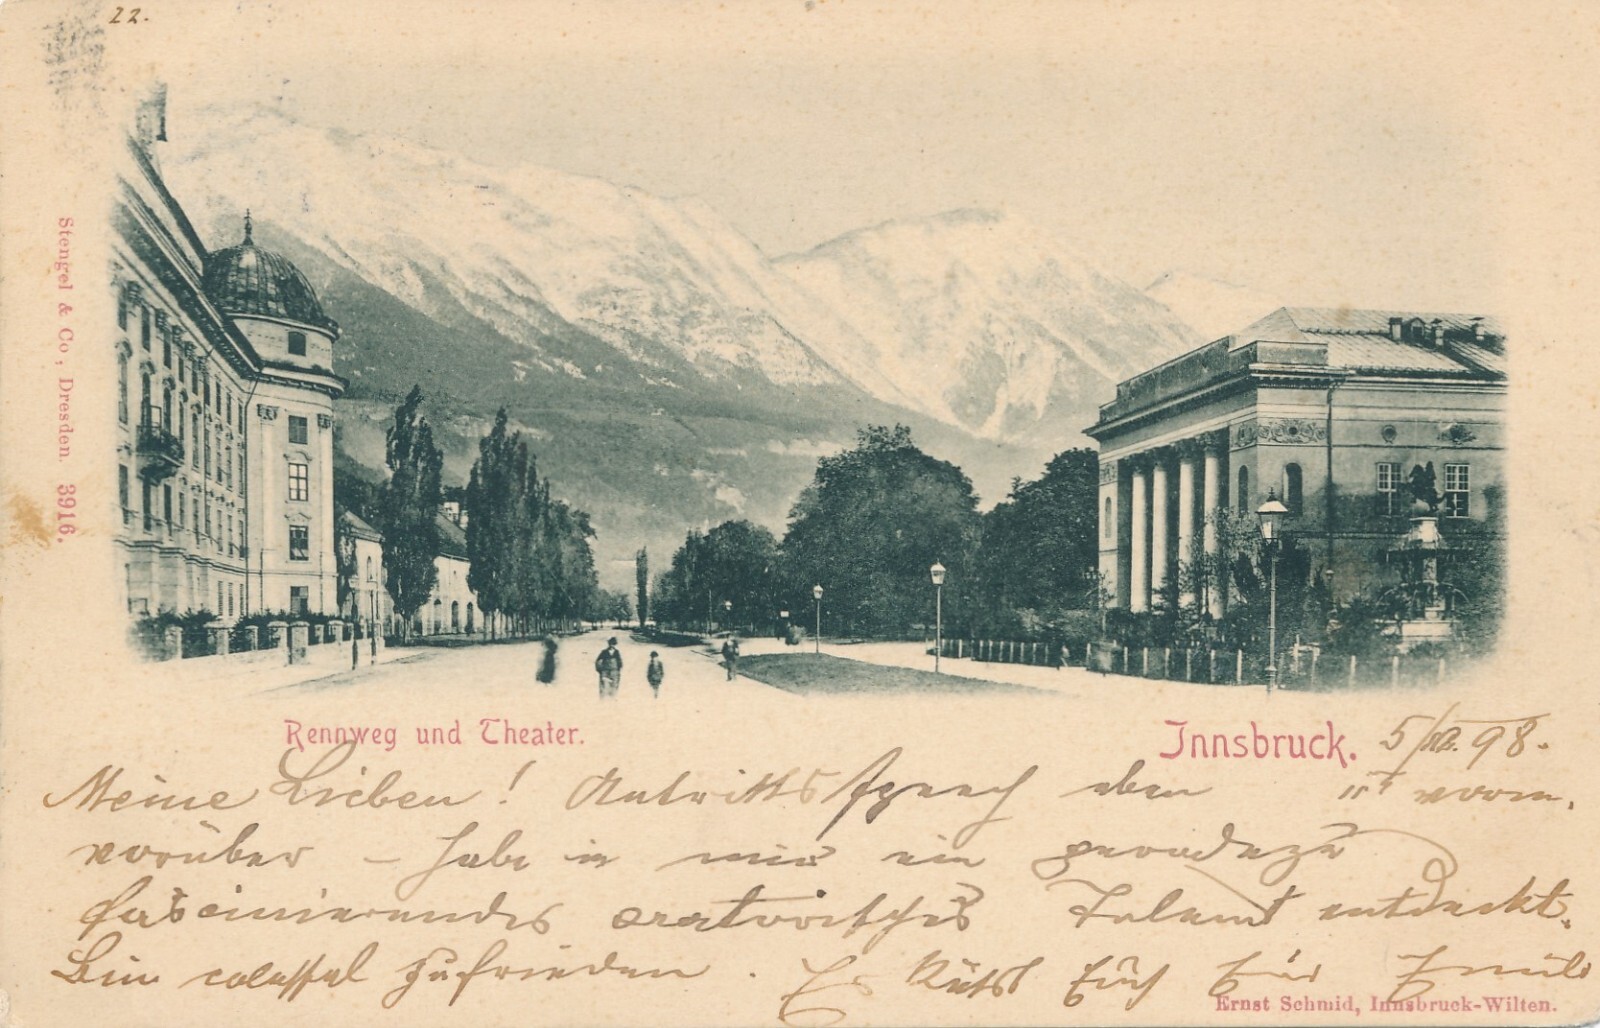 22.
Stengel & Co., Dresden. 3916.
Rennweg und Theater.
Innsbruck. 5/XII. 98.
Meine Lieben! Antritts eben 11 vorm.
vorüber – habe in mir ein geradezu
fascinierendes oratorisches Talent entdeckt.
Bin colossal zufrieden. Es küsst Euch Emil
Ernst Schmid, Innsbruck-Wilten.